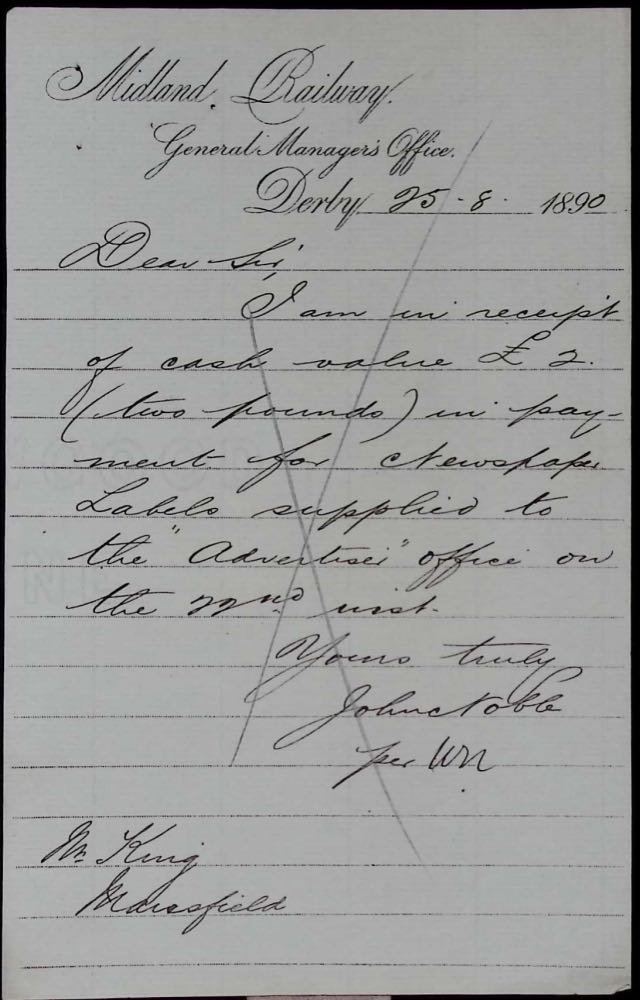 Midland Railway.
General Manager's Office.
Derby 25 - 8 - 1890
Dear Sir,
I am in receipt
of cash value £2.
(two pounds) in pay-
ment for Newspaper
Labels supplied to
the "Advertiser" office on
the 22nd inst.
Yours truly
John Noble
per WN
Mr King
Mansfield